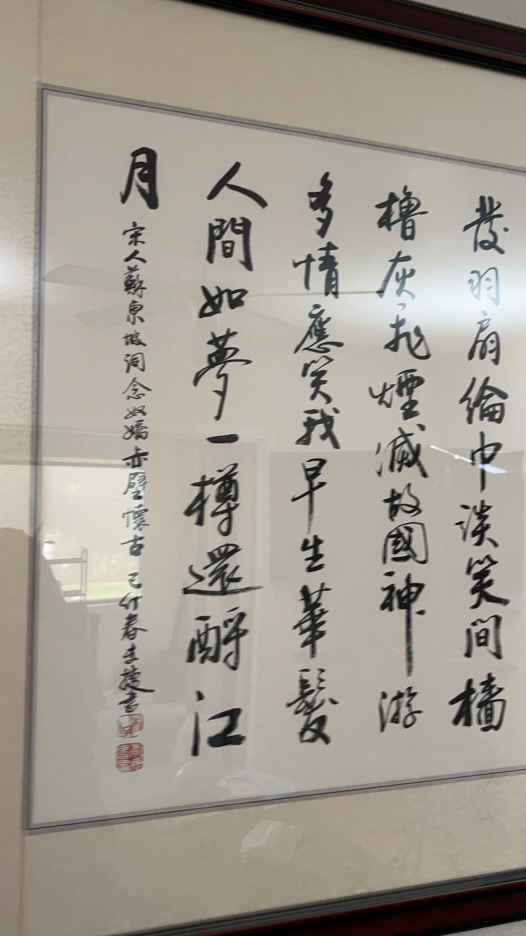 發羽扇綸巾談笑間檣
櫓灰飛煙滅故國神游
多情應笑我早生華髮
人間如夢一樽還酹江
月
宋人蘇東坡詞念奴嬌赤壁懷古 己卯春李 書